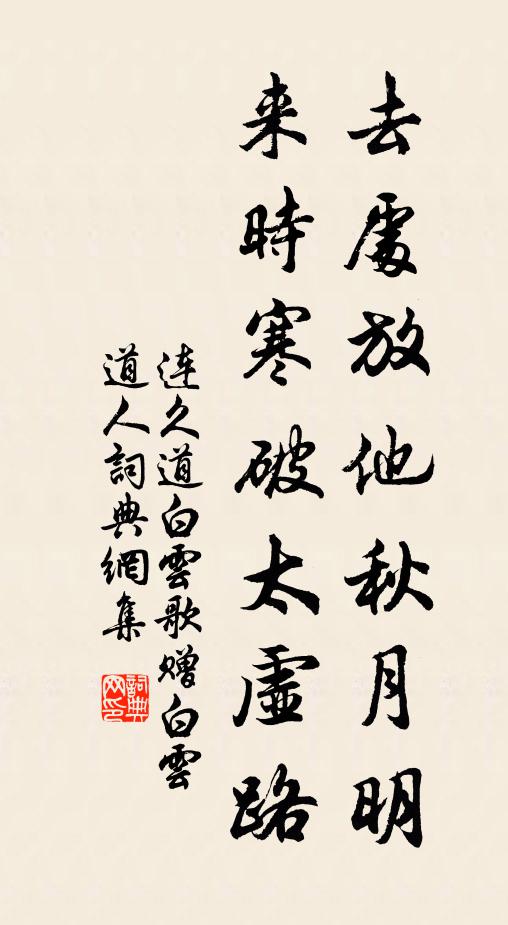 去處放他秋月明
来時寒破太虛路
連久道白雲歌贈白雲
道人詞典網集
詞典
网印